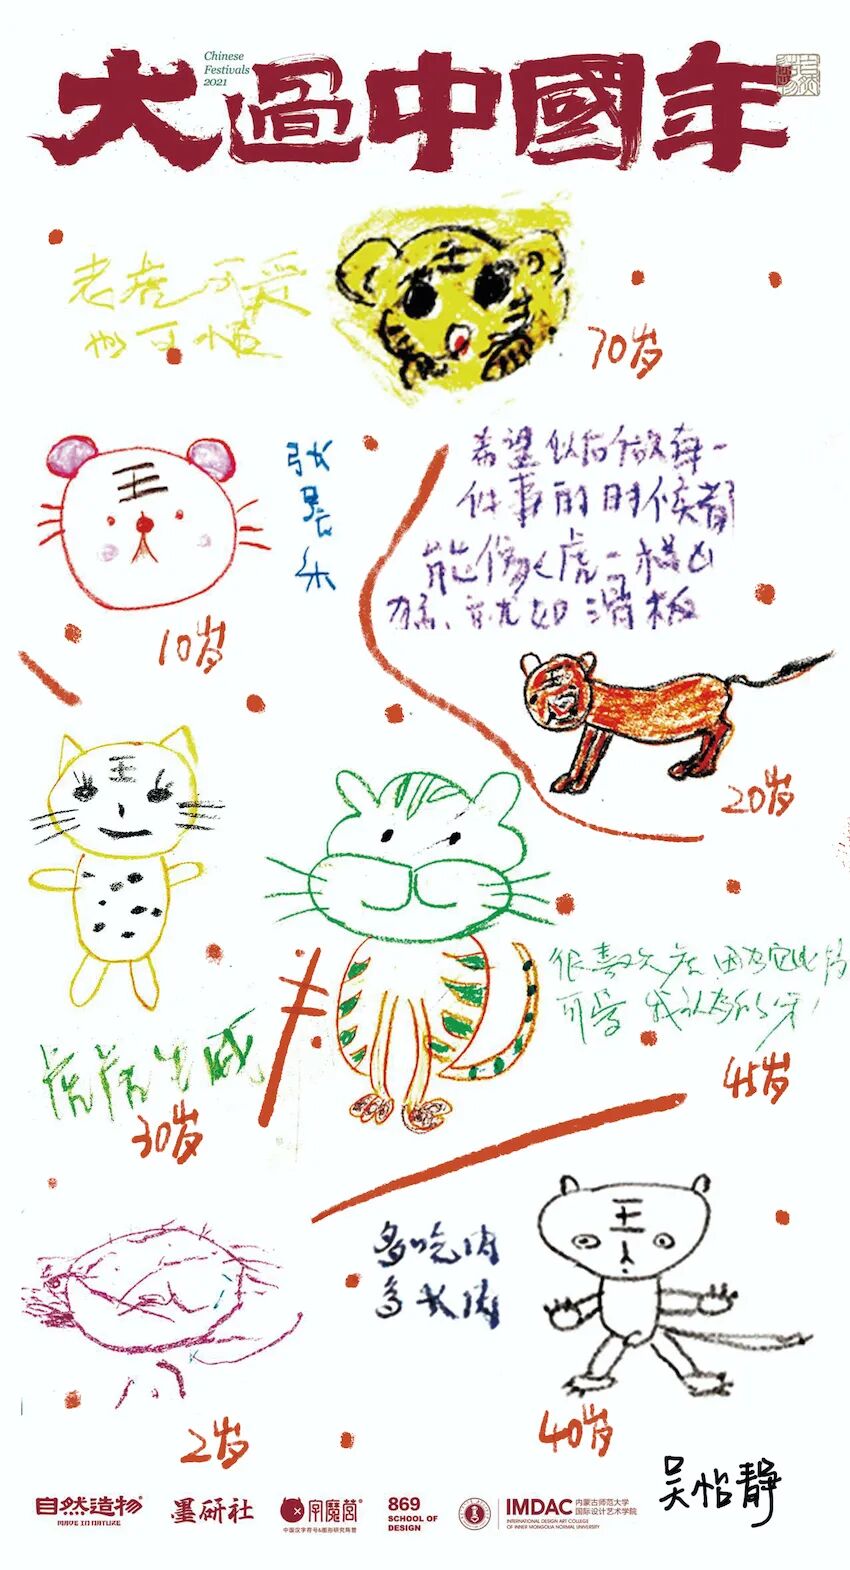 大過中國年
Chinese
Festivals
2021
老虎可爱
也可怕
70岁
王
张
晨
乐
10岁
希望以后做每一
件事的时候都
能像
虎一样凶
猛、就如滑板
20岁
王
虎虎生威
30岁
很喜欢虎 因为它比
可爱
45岁
2岁
多吃肉
多长肉
王
40岁
吴怡静
自然造物
MADE IN NATURE
墨研社
字魔营
中国汉字符号&图形研究阵营
869
SCHOOL OF
DESIGN
IMDAC
内蒙古师范大学
国际设计艺术学院
INTERNATIONAL DESIGN ART COLLEGE
OF INNER MONGOLIA NORMAL UNIVERSITY